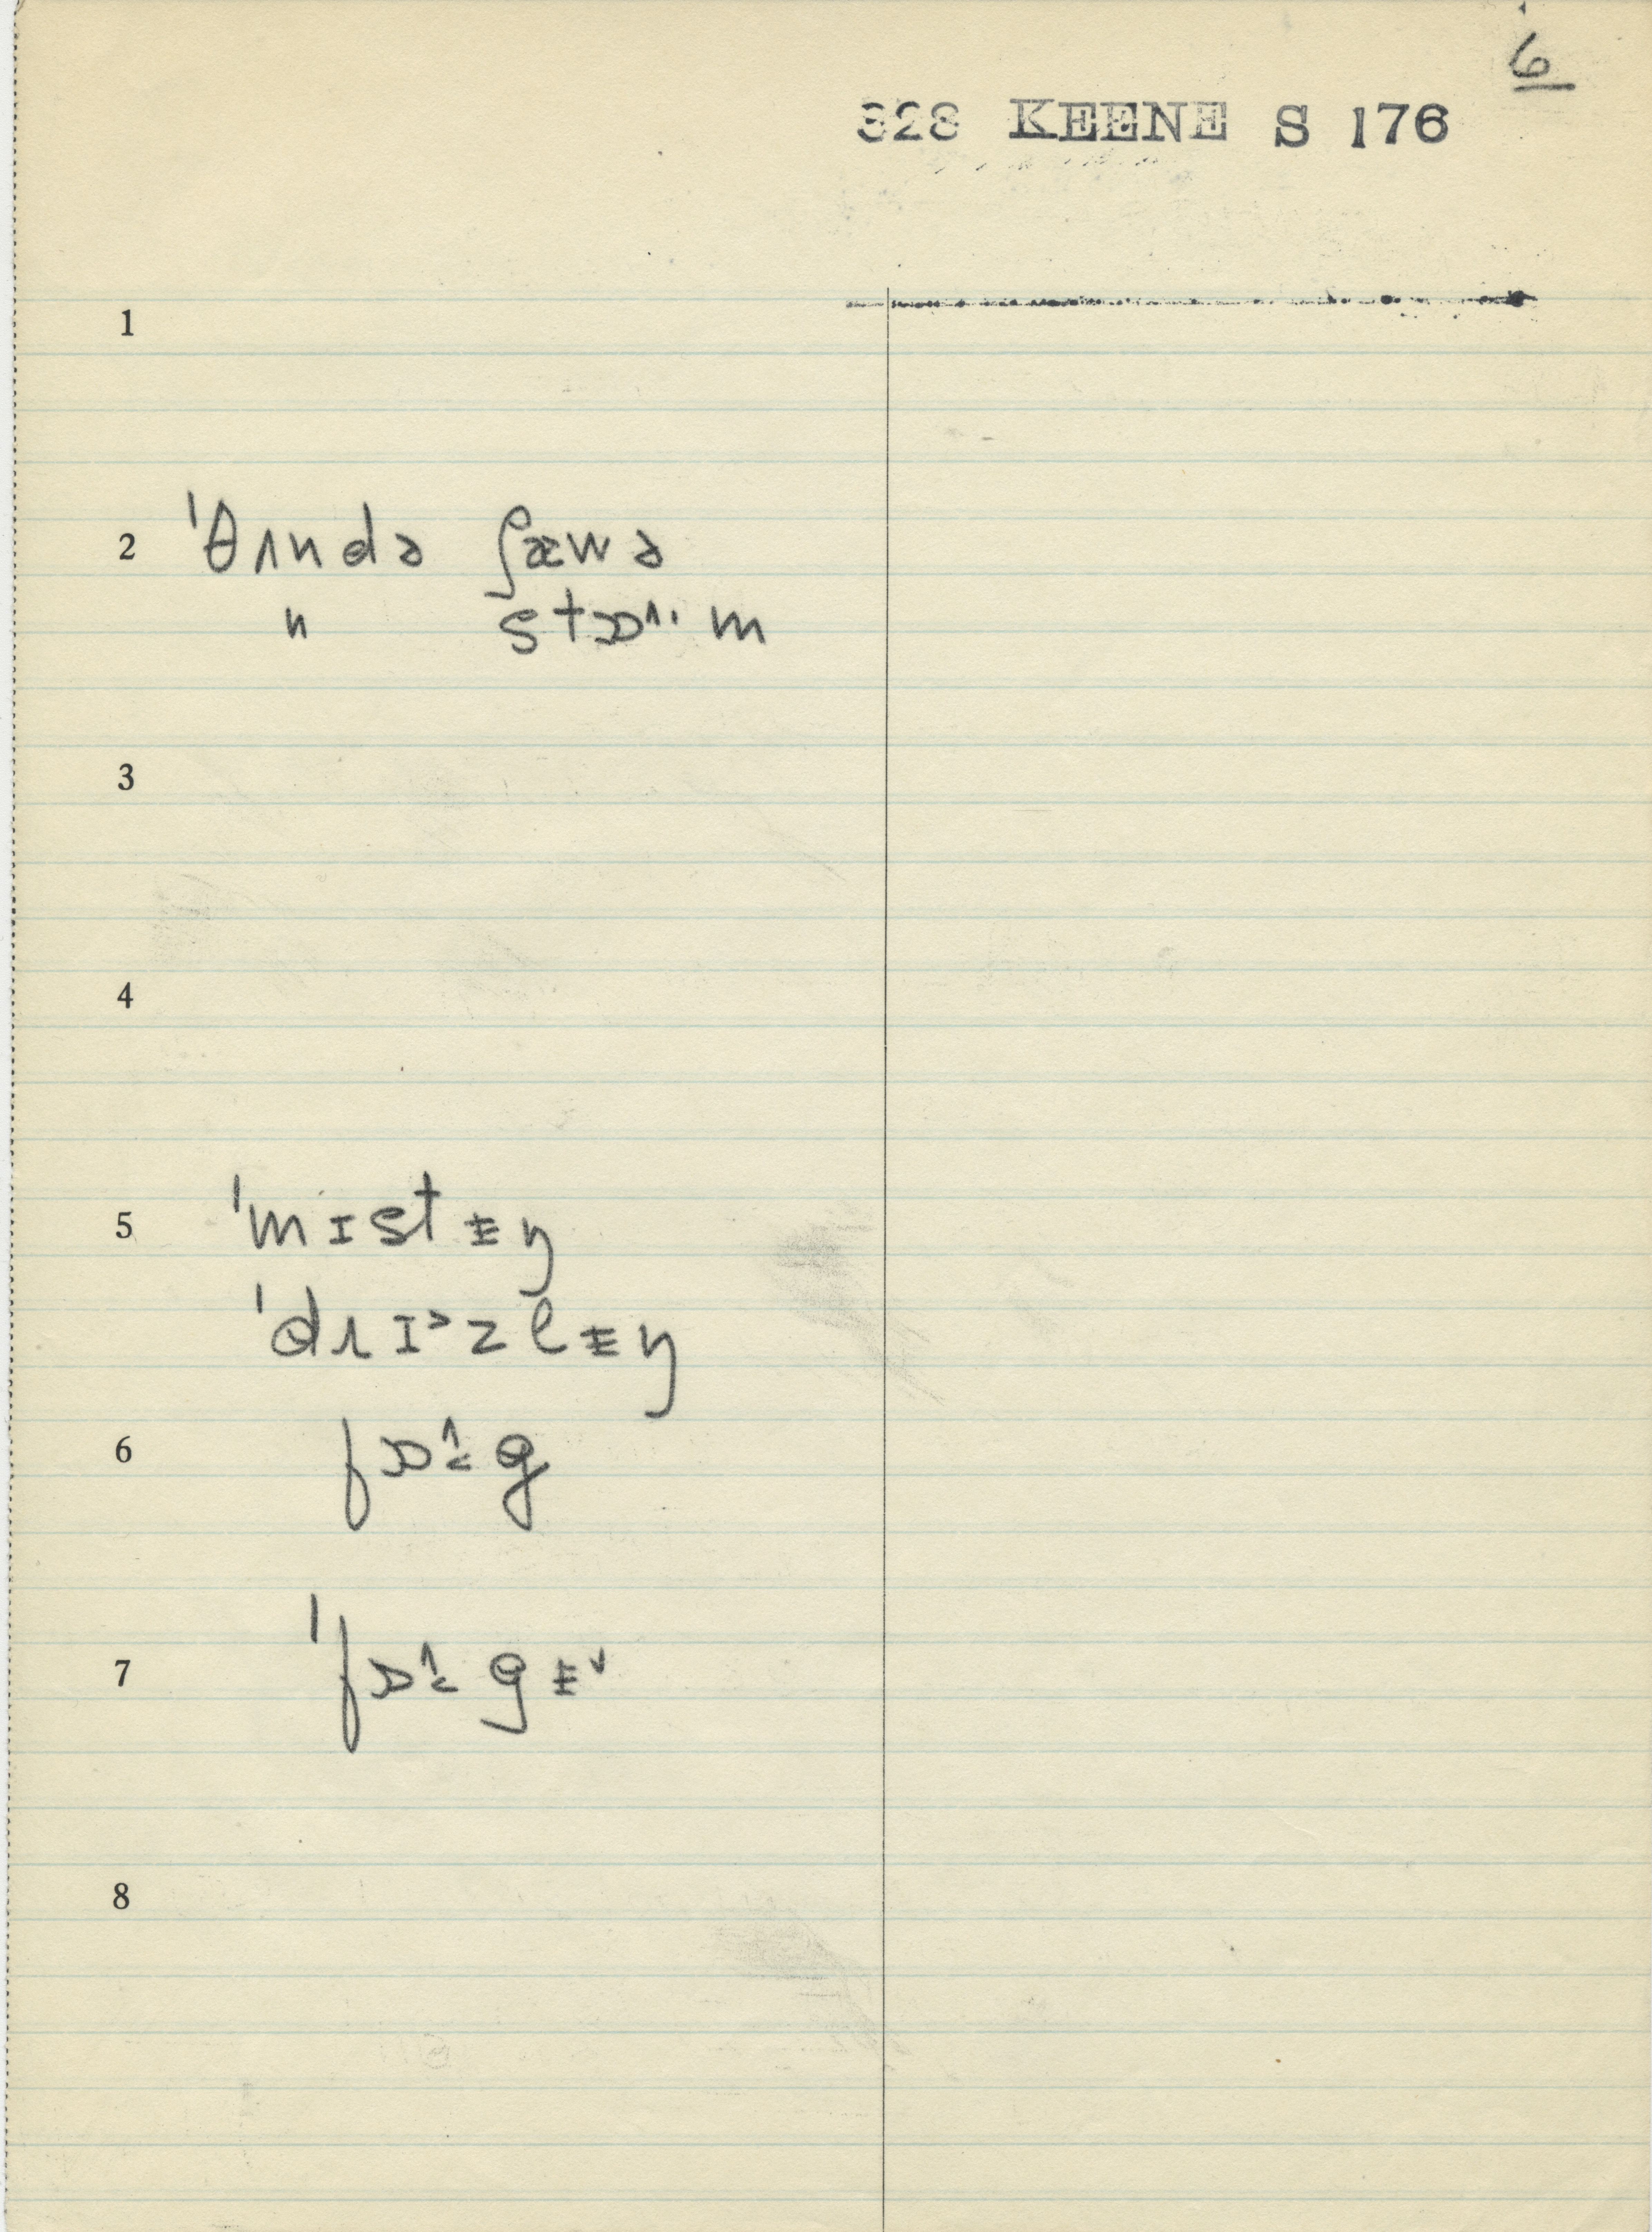 6
328 KEENE S 176
1
2 ˈθʌndə ʃæwə
" stɒ˄· m
3
4
5 ˈmɪstᵻŋ
ˈdɹɪ˃zlᵻŋ
6 fɒ˄: g
7 ˈfɒ˄: gᵻ˅
8